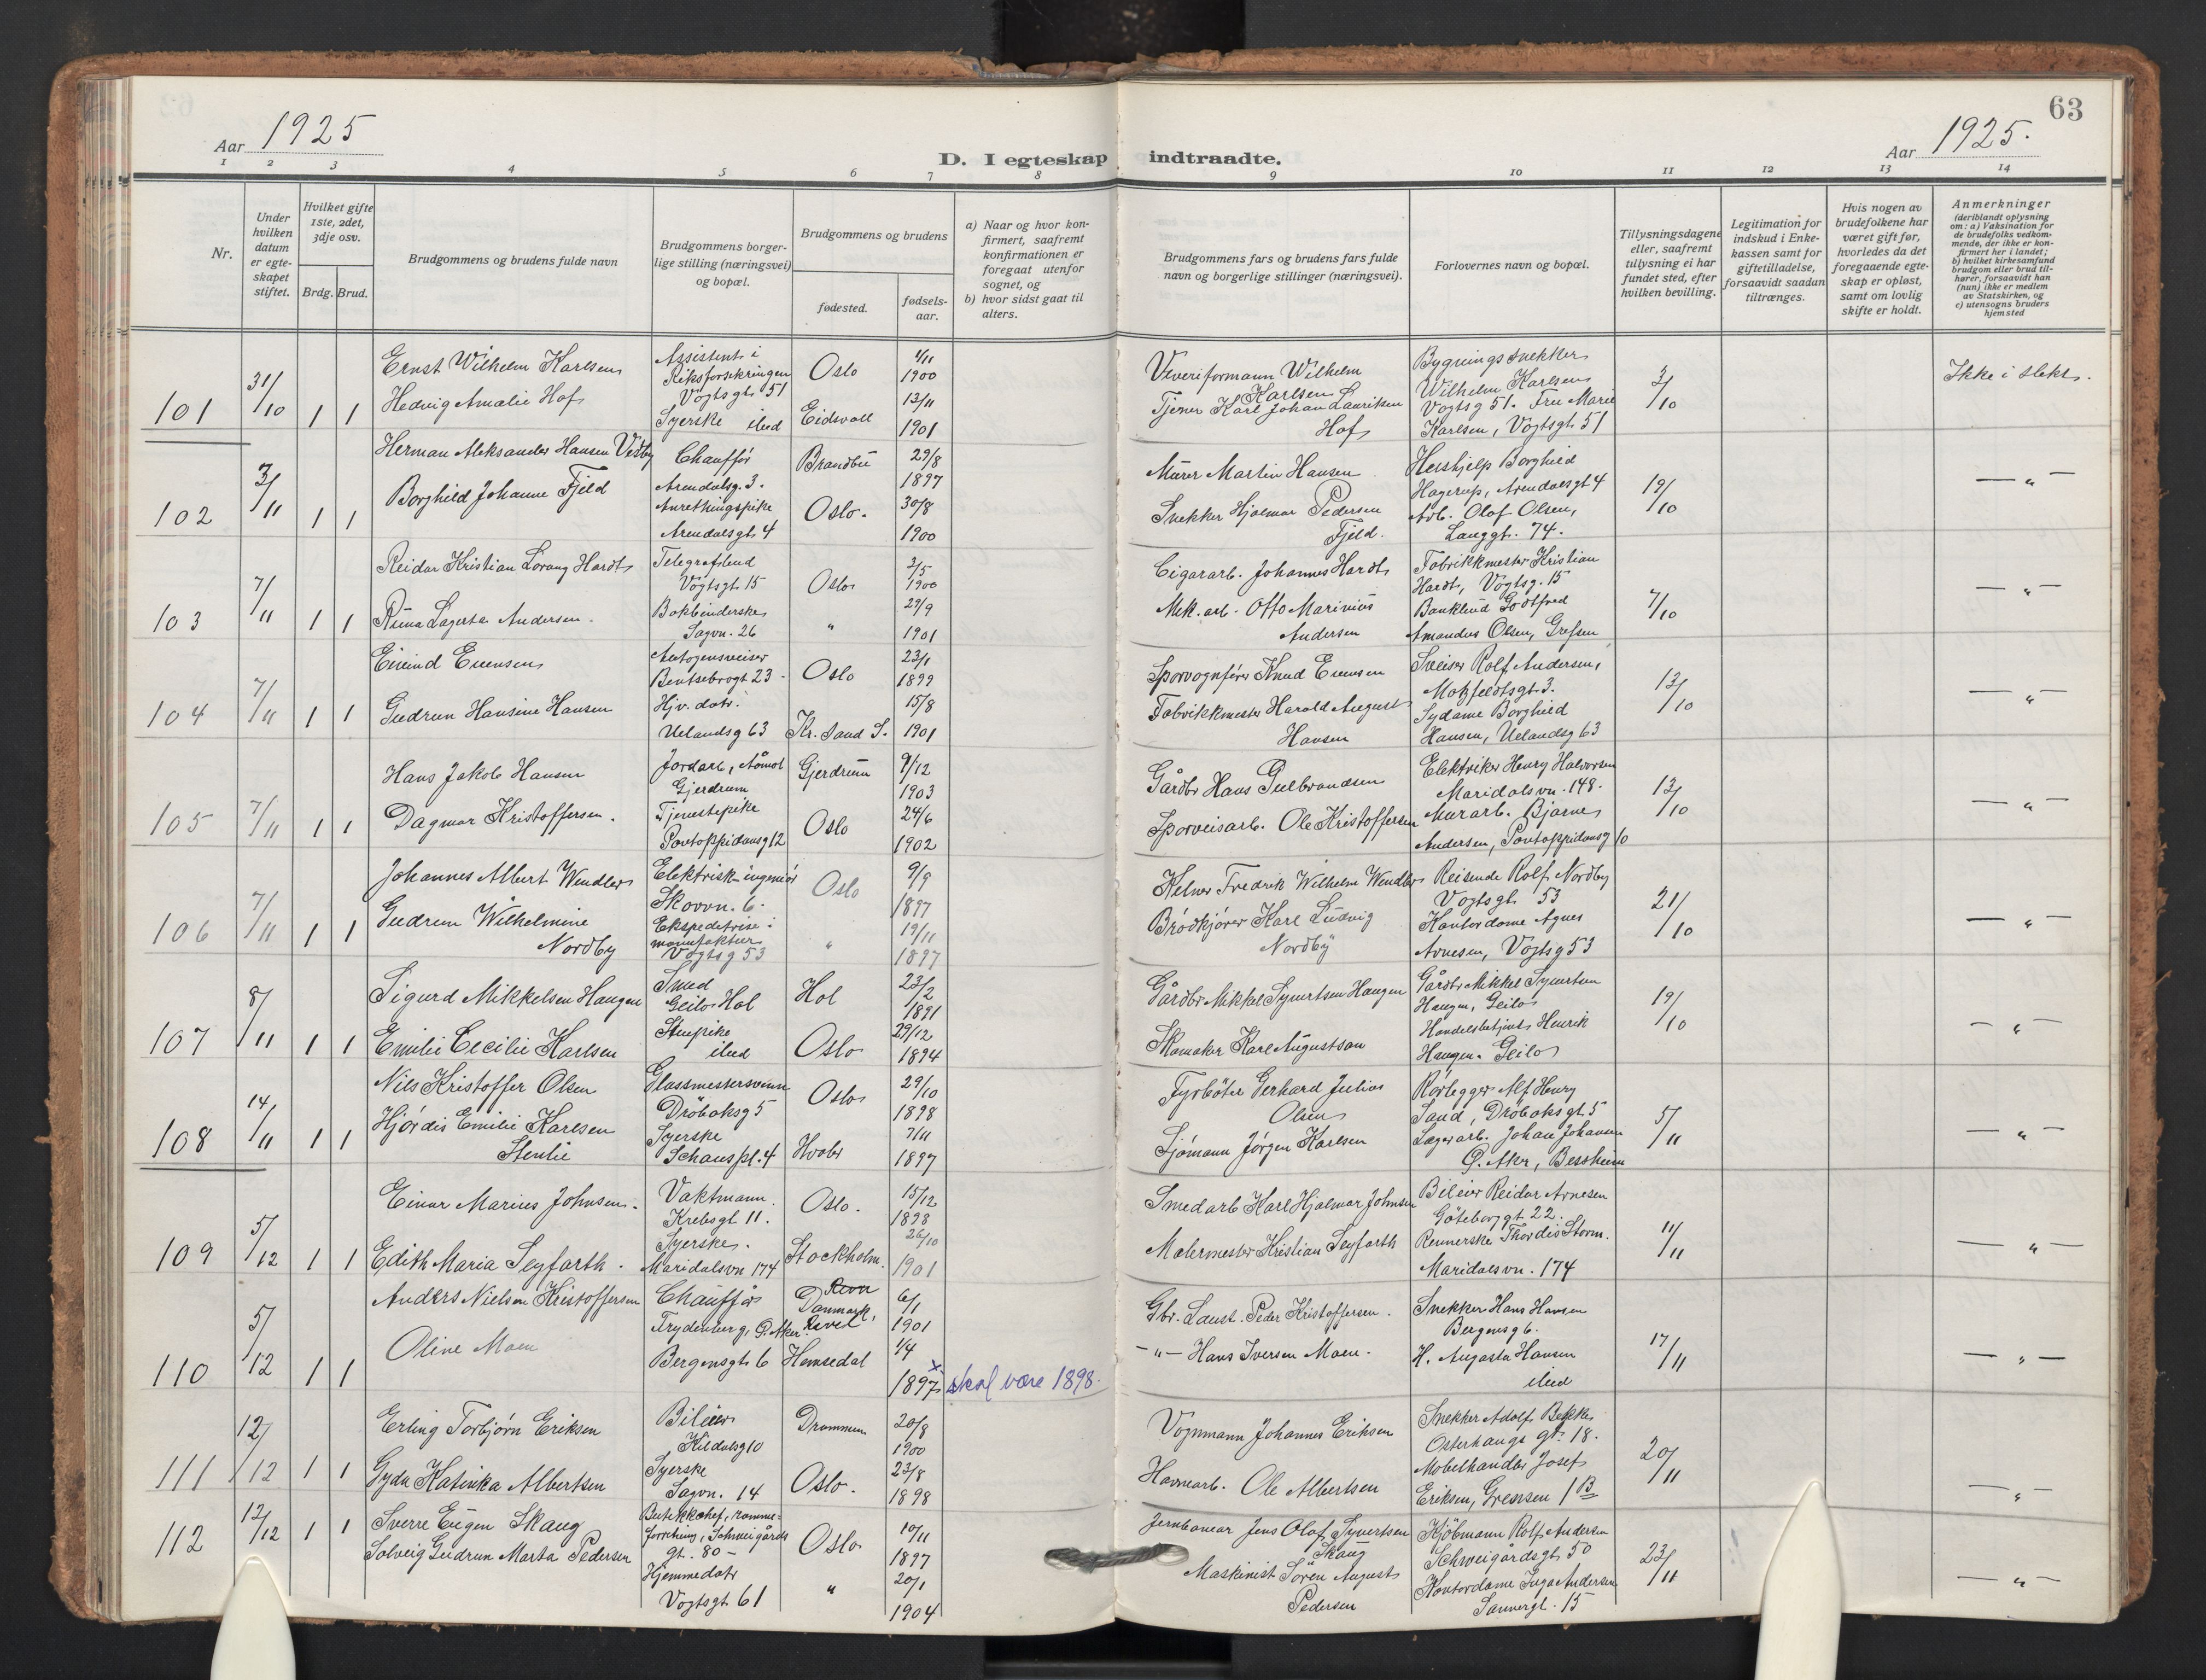 63
Aar 1925
D. I egteskap indtraadte.
Aar 1925.
1 2 3 4 5 6 7 8 9 10 11 12 13 14
Nr.
Under
hvilken
datum
er egte-
skapet
stiftet.
Hvilket gifte
1ste, 2det,
3dje osv.
Brdg. Brud.
Brudgommens og brudens fulde navn
Brudgommens borger-
lige stilling (næringsvei)
og bopæl.
Brudgommens og brudens
fødested.
fødsels-
aar.
a) Naar og hvor kon-
firmert, saafremt
konfirmationen er
foregaat utenfor
sognet, og
b) hvor sidst gaat til
alters.
Brudgommens fars og brudens fars fulde
navn og borgerlige stillinger (næringsvei).
Forlovernes navn og bopæl.
Tillysningsdagene
eller, saafremt
tillysning ei har
fundet sted, efter
hvilken bevilling.
Legitimation for
indskud i Enke-
kassen samt for
giftetilladelse,
forsaavidt saadan
tiltrænges.
Hvis nogen av
brudefolkene har
været gift før,
hvorledes da det
foregaaende egte-
skap er opløst,
samt om lovlig
skifte er holdt.
Anmerkninger
(deriblandt oplysning
om: a) Vaksination for
de brudefolks vedkom-
mende, der ikke er kon-
firmert her i landet;
b) hvilket kirkesamfund
brudgom eller brud til-
hører, forsaavidt han
(hun) ikke er medlem
av Statskirken, og
c) utensogns bruders
hjemsted
101
31/10
1 1
Ernst Wilhelm Karlsen
Hedvig Amalie Hof
Assistent i
Riksforsikringen
Vogtsgt 51
Syerske ibid
Oslo
Eidsvoll
4/11
1900
13/11
1901
Veveriformann Wilhelm
Karlsen
Tjener Karl Johan Lauritsen
Hof
Bygningssnekker
Wilhelm Karlsen
Vogtsg 51. Fru Marie
Karlsen, Vogtsgt 51
3/10
Ikke i slekt.
102
7/11
1 1
Herman Aleksander Hansen Vesby
Borghild Johanne Fjeld
Chauffør
Arendalsg. 3.
Anretningspike
Arendalsgt 4
Brandbu
Oslo.
29/8
1897
30/8
1900
Murer Martin Hansen
Snekker Hjalmar Pedersen
Fjeld.
Hushjelp Borghild
Hagerup, Arendalsgt 4
Arb. Olaf Olsen,
Langgt. 74.
19/10
— " —
103
7/11
1 1
Reidar Kristian Lorang Hardt
Runa Lagerta Andersen.
Telegrafbud
Vogtsgt 15
Bokbinderske
Sagvn. 26
Oslo
"
3/5
1900
29/9
1901
Cigararb. Johannes Hardt
Mek. arb. Otto Marinius
Andersen
Fabrikkmester Kristian
Hardt, Vogtsg. 15
Bankbud Godtfred
Amandus Olsen, Grefsen
7/10
— " —
104
7/11
1 1
Eivind Evensen
Gudrun Hansine Hansen
Autogensveiser
Bentsebrogt 23
Hjv. datr.
Uelandsg 63
Oslo
Kr. Sand S.
23/1
1899
15/8
1901
Sporvognfører Knud Evensen
Fabrikkmester Harald August
Hansen
Sveiser Rolf Andersen,
Motzfeldtsgt 3.
Sydame Borghild
Hansen, Uelandsg 63
13/10
— " —
105
7/11
1 1
Hans Jakob Hansen
Dagmar Kristoffersen.
Jordarb, Åmot
Gjerdrum
Tjenestepike
Pontoppidansg 12
Gjerdrum
Oslo
9/12
1903
24/6
1902
Gårdbr Hans Gulbrandsen
Sporveisarb. Ole Kristoffersen
Elektriker Henry Halvorsen
Maridalsvn. 148.
Murarb. Bjarne
Andersen, Pontoppidansg 10
13/10
— " —
106
7/11
1 1
Johannes Albert Wendler
Gudrun Wilhelmine
Nordby
Elektrisk ingeniør
Skovvn. 6.
Ekspeditrise i
manufaktur
Vogtsg 53
Oslo
"
9/9
1897
19/11
1897
Kelner Fredrik Wilhelm Wendler
Brødkjører Karl Ludvig
Nordby
Reisende Rolf Nordby
Vogtsgt 53
Kontordame Agnes
Arnesen, Vogtsg 53
21/10
— " —
107
8/11
1 1
Sigurd Mikkelsen Haugen
Emilie Cecilie Karlsen
Smed
Geilo Hol
Stuepike
ibid
Hol
Oslo
23/2
1891
29/12
1894
Gårdbr Mikkel Syvertsen Haugen
Skomaker Karl Augustson
Gårdbr Mikkel Syvertsen
Haugen, Geilo
Handelsbetjent Henrik
Haugen. Geilo
19/10
— " —
108
14/11
1 1
Nils Kristoffer Olsen
Hjørdis Emilie Karlsen
Stenlie
Glassmestersvenn
Drøbaksg 5
Syerske
Schous pl. 4
Oslo
Hvaler
29/10
1898
7/11
1897
Fyrbøter Gerhard Julius
Olsen
Sjømann Jørgen Karlsen
Rørlegger Alf Henry
Sand, Drøbaksgt 5
Lagerarb. Johan Johansen
Ø. Aker, Bessheim
5/11
— " —
109
5/12
1 1
Einar Marius Johnsen.
Edith Maria Seyfarth.
Vaktmann
Krebsgt 11.
Syerske.
Maridalsvn 174
Oslo.
Stockholm.
15/12
1898
26/10
1901
Smedarb Karl Hjalmar Johnsen
Malermester Kristian Seyfarth
Bileier Reidar Arnesen
Göteborggt 22.
Rennerske Thordis Storm.
Maridalsvn. 174
11/11
— " —
110
5/12
1 1
Anders Nielsen Kristoffersen
Oline Moen
Chauffør
Frydenberg, Ø. Aker
Bergensgt 6
Danmark,
Hemsedal
6/1
1901
1/4
1897 x
skal være 1898.
Gbr. Laust Peder Kristoffersen.
— " — Hans Iversen Moen.
Snekker Hans Hansen
Bergensg 6.
H. Augasta Hansen
ibid
17/11
— " —
111
12/12
1 1
Erling Torbjørn Eriksen
Gyda Katinka Albertsen
Bileier
Kildalsg 10
Syerske
Sagvn. 14
Drammen
Oslo.
20/8
1900
23/8
1898
Vognmann Johannes Eriksen
Havnearb. Ole Albertsen
Snekker Adolf Bekke
Osterhaugs gt. 18.
Møbelhandler Josef
Eriksen, Grensen 1 B
20/11
— " —
112
12/12
1 1
Sverre Eugen Skaug
Solveig Gudrun Marta Pedersen
Butikkchef, ramme-
forretning, Schweigårds
gt. 80 —
Hjemmedatr
Vogtsgt 61
Oslo
"
10/11
1897
20/1
1904
Jernbanear Jens Olaf Syvertsen
Skaug
Maskinist Søren August
Pedersen
Kjøbmann Rolf Andersen
Schweigårdsgt 50
Kontordame Inga Andersen
Sannergt. 15
23/11
— " —